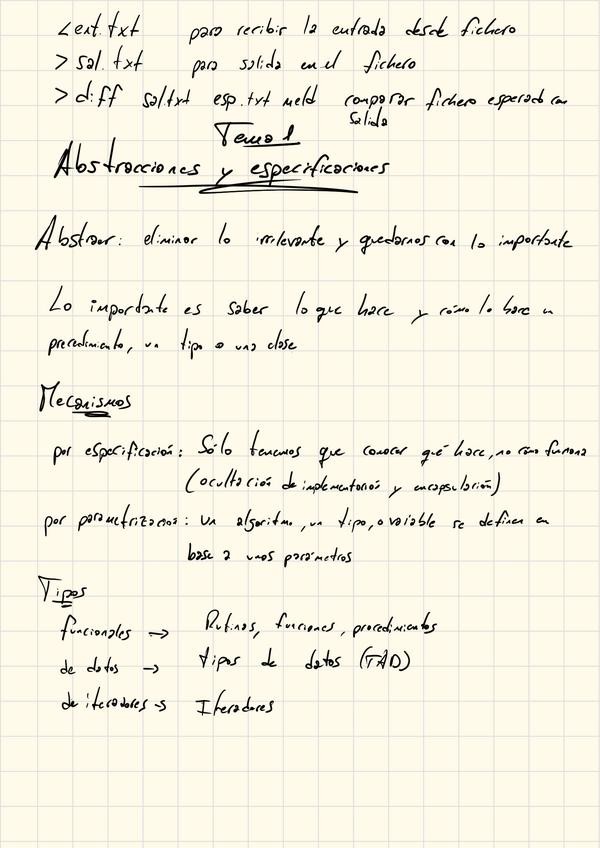 <ent.txt para recibir la entrada desde fichero
> sal.txt para salida en el fichero
> diff sal.txt esp.txt meld comparar fichero esperado con
salida
Tema 1
Abstracciones y especificaciones
Abstraer: eliminar lo irrelevante y quedarnos con lo importante
Lo importante es saber lo que hace y cómo lo hace un
procedimiento, un tipo o una clase
Mecanismos
por especificación: Sólo tenemos que conocer qué hace, no cómo funciona
(ocultación de implementación y encapsulación)
por parametrización: un algoritmo, un tipo, o variable se definen en
base a unos parámetros
Tipos
funcionales → Rutinas, funciones, procedimientos
de datos → tipos de datos (TAD)
de iteradores → Iteradores